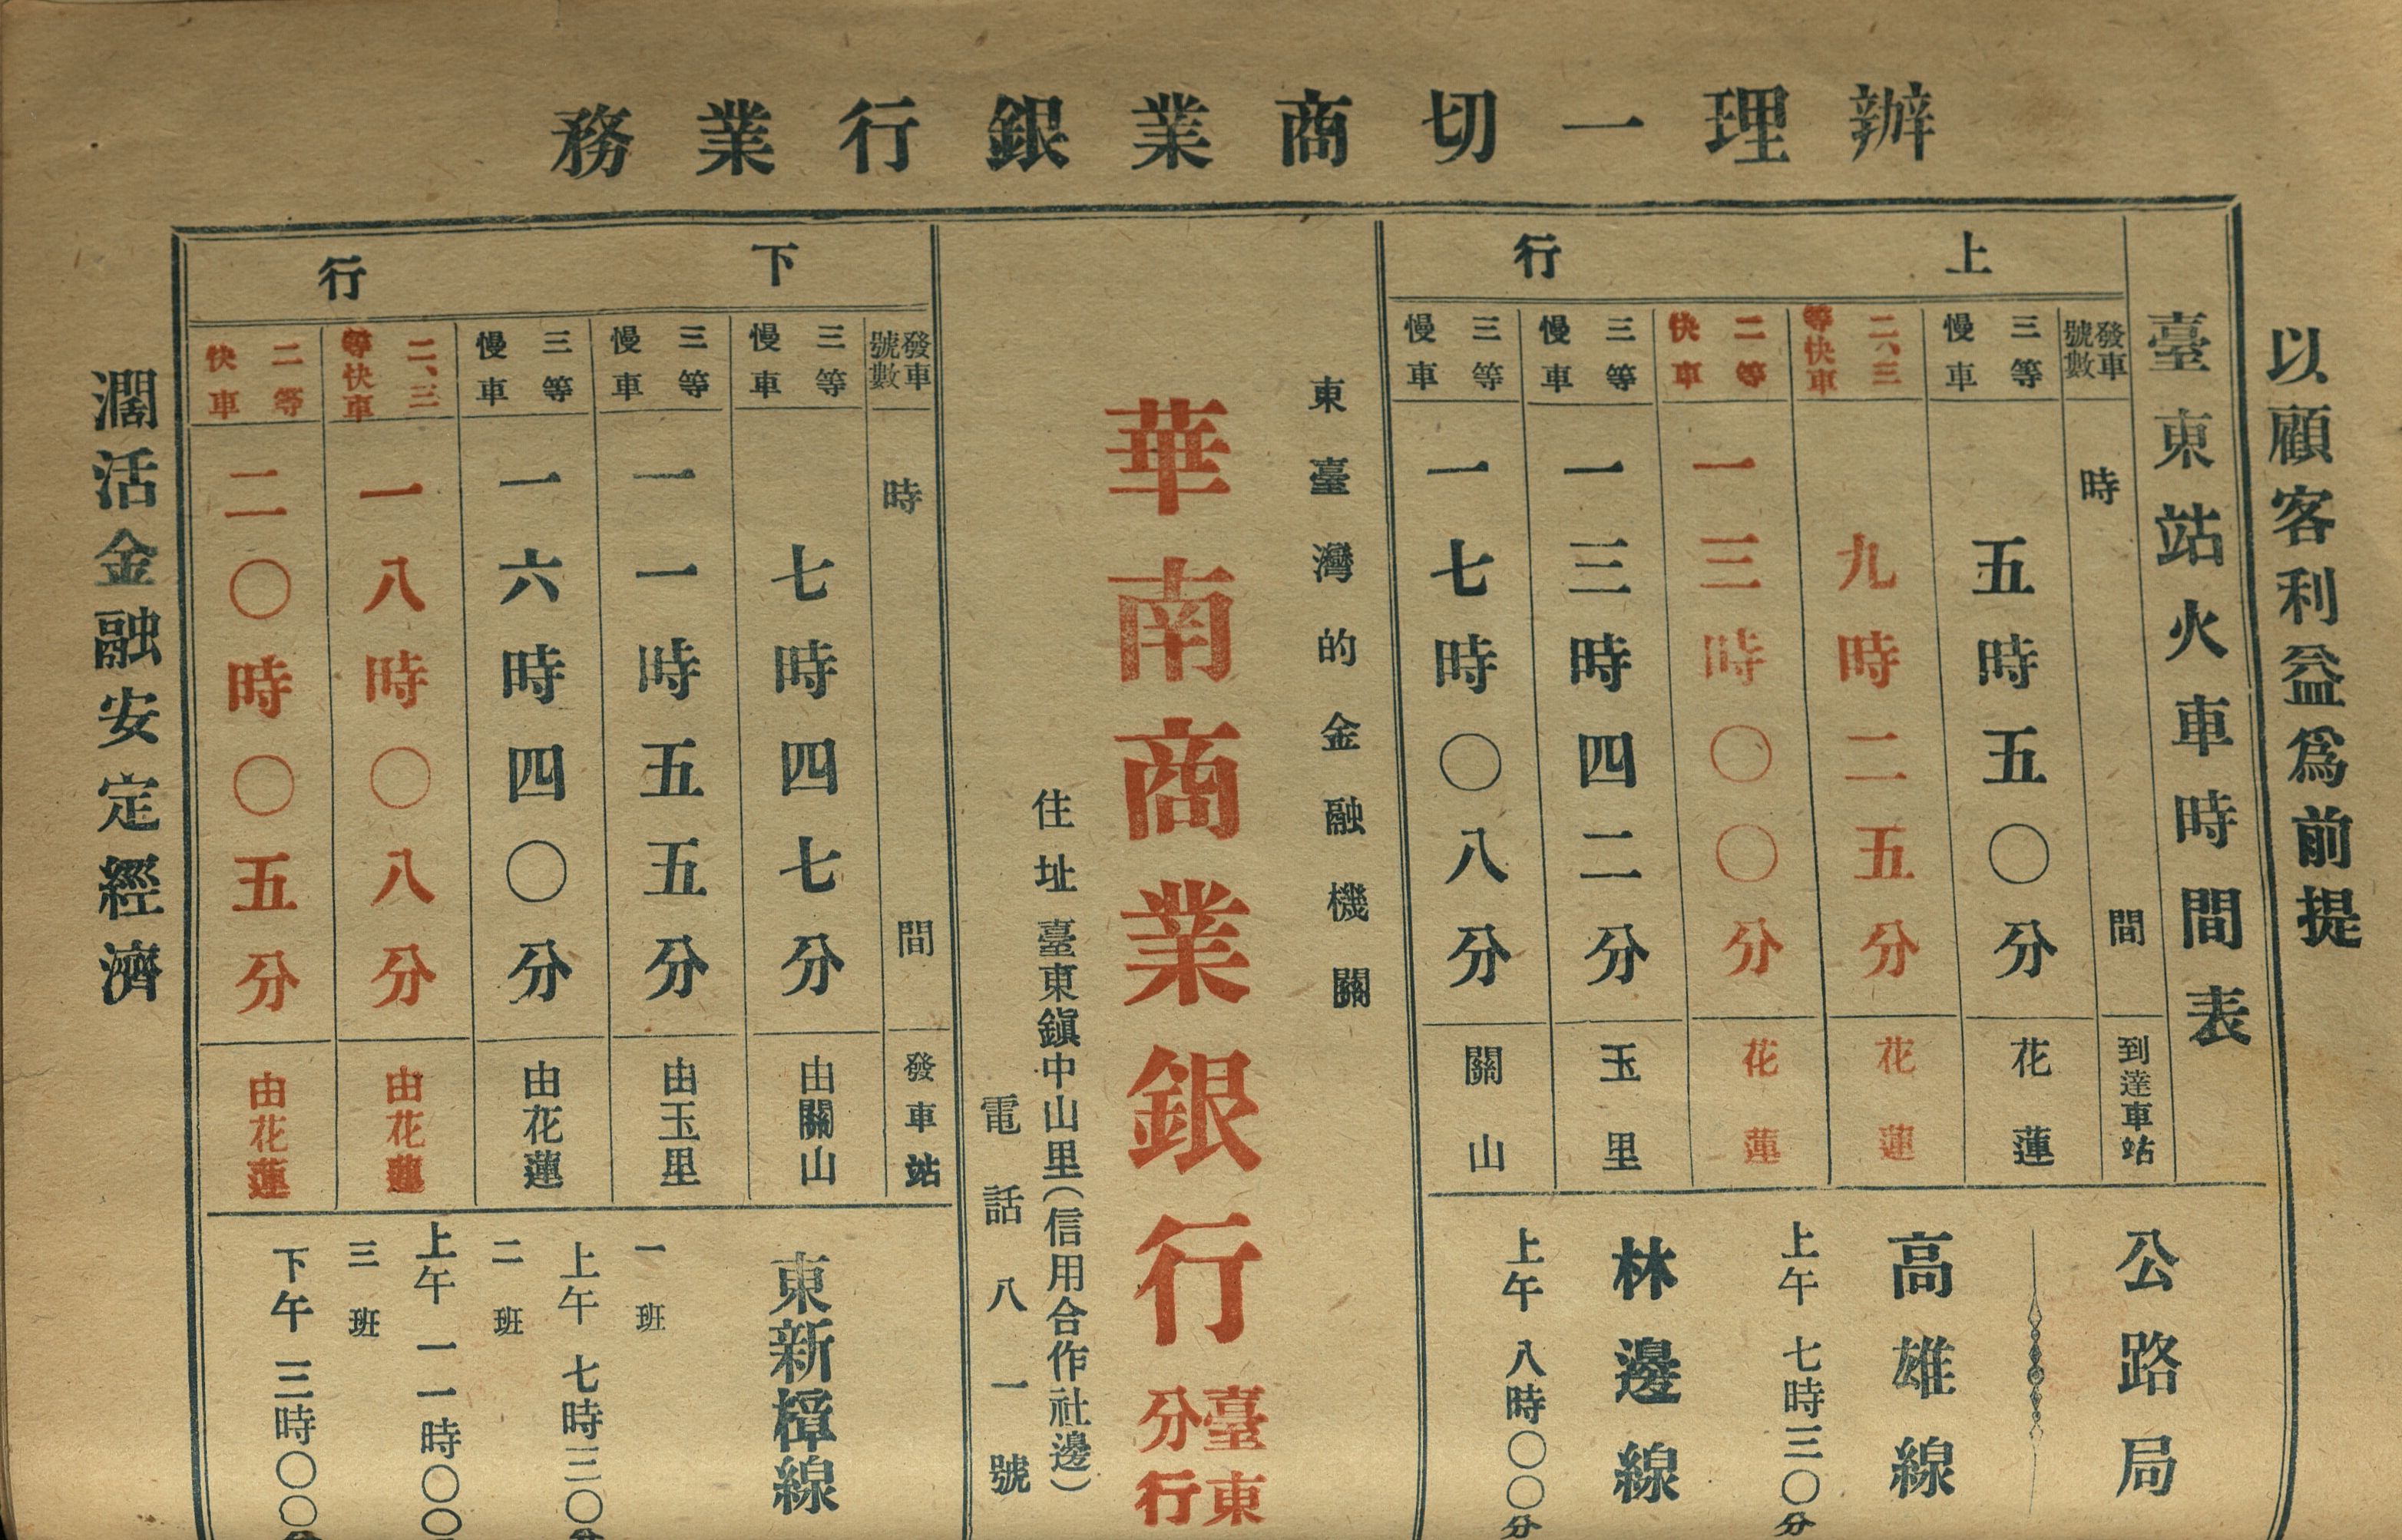 辦理一切商業銀行業務
以顧客利益爲前提
臺東站火車時間表
上行
發車號數 時間 到達車站
三等慢車 五時五〇分 花蓮
二、三等快車 九時二五分 花蓮
二等快車 一三時〇〇分 花蓮
三等慢車 一三時四二分 玉里
三等慢車 一七時〇八分 關山
公路局
高雄線
上午 七時三〇分
林邊線
上午 八時〇〇分
東臺灣的金融機關
華南商業銀行臺東分行
住址 臺東鎭中山里(信用合作社邊)
電話八一號
下行
發車號數 時間 發車站
三等慢車 七時四七分 由關山
三等慢車 一一時五五分 由玉里
三等慢車 一六時四〇分 由花蓮
二、三等快車 一八時〇八分 由花蓮
二等快車 二〇時〇五分 由花蓮
東新樟線
一班
上午 七時三〇分
二班
上午 一一時〇〇
三班
下午 三時〇〇分
濶活金融安定經濟